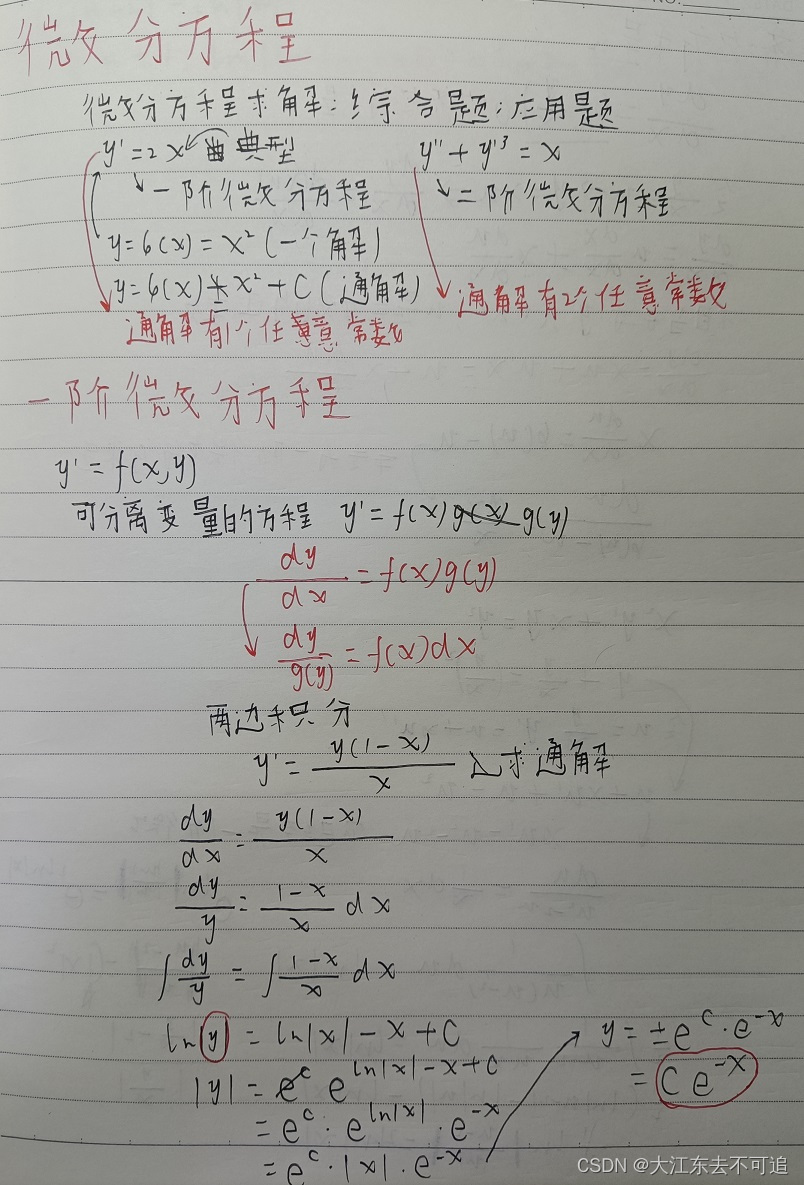 微分方程
微分方程求解;综合题;应用题
y' = 2x 典型
y'' + y'³ = x
一阶微分方程
二阶微分方程
y = 6(x) = x² (一个解)
y = 6(x) = x² + C (通解)
通解有1个任意常数
通解有2个任意常数
一阶微分方程
y' = f(x,y)
可分离变量的方程 y' = f(x) g(x) g(y)
dy/dx = f(x)g(y)
dy/g(y) = f(x)dx
两边积分
y' = y(1-x)/x 求通解
dy/dx = y(1-x)/x
dy/y = (1-x)/x dx
∫ dy/y = ∫ (1-x)/x dx
ln|y| = ln|x| - x + C
|y| = e^c e^(ln|x| - x + C)
= e^c · e^(ln|x|) · e^(-x)
= e^c · |x| · e^(-x)
y = ±e^c · e^(-x)
= C e^(-x)
CSDN @大江东去不可追